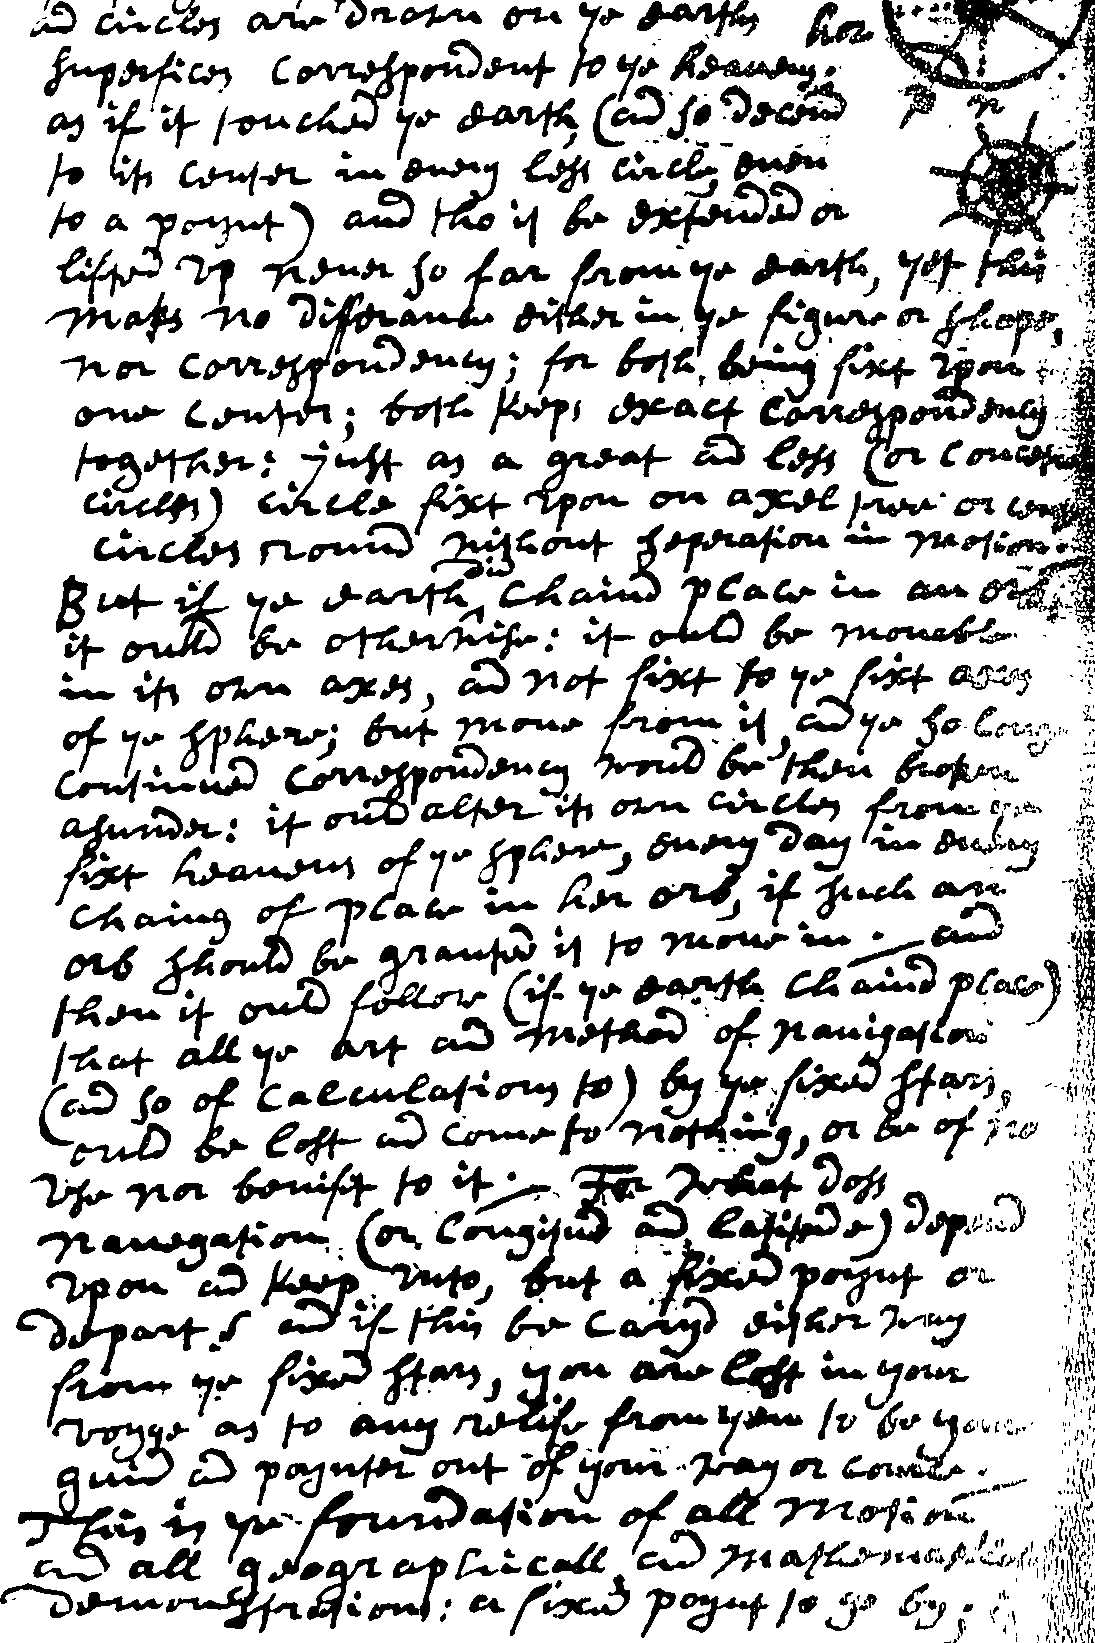 ad circles are drawn on ye earths
hor
superfices Correspondent to ye heavens.
as if it touched ye earth, (ad so decend
p m
to its center in every less circle, even
to a poynt) and tho it be extended or
lifted vp never so far from ye earth, yet this
Maks no differance either in ye figure or shape,
nor Correspondency; for both, being fixt vpon
one Center; both keeps exact Correspondency
together: just as a great ad less (or
circles) circle fixt vpon on axel tree or
circles round without seperation in Motion.
But if ye earth did Chaing place in an orb
it ould be otherwise: it ould be moveable
in its own axes, ad not fixt to ye fixt axes
of ye sphere; but move from it, ad ye so long
Continued Correspondency would be then broken
asunder: it ould alter its own circles from ye
fixt heavens of ye sphere, every day in every
Chaing of place in her orb, if such an
orb should be granted it to move in. and
then it ould follow (if ye earth Chaind place)
that all ye art ad Method of Navigation
(ad so of Calculations to) by ye fixed stars,
ould be lost ad come to nothing, or be of no
vse nor benifit to it. For what doss
Navegation (or Longitud ad Latitude) depend
vpon ad keep vnto, but a fixed poynt or
depart. & if this be Caryd either way
from ye fixed stars, you are lost in your
voyge as to any relife from yem to be your
guid ad poynter out of your way or course.
This is ye foundation of all Motion
ad all geographicall ad Mathematicall
demonstrations: a fixed poynt to go by;